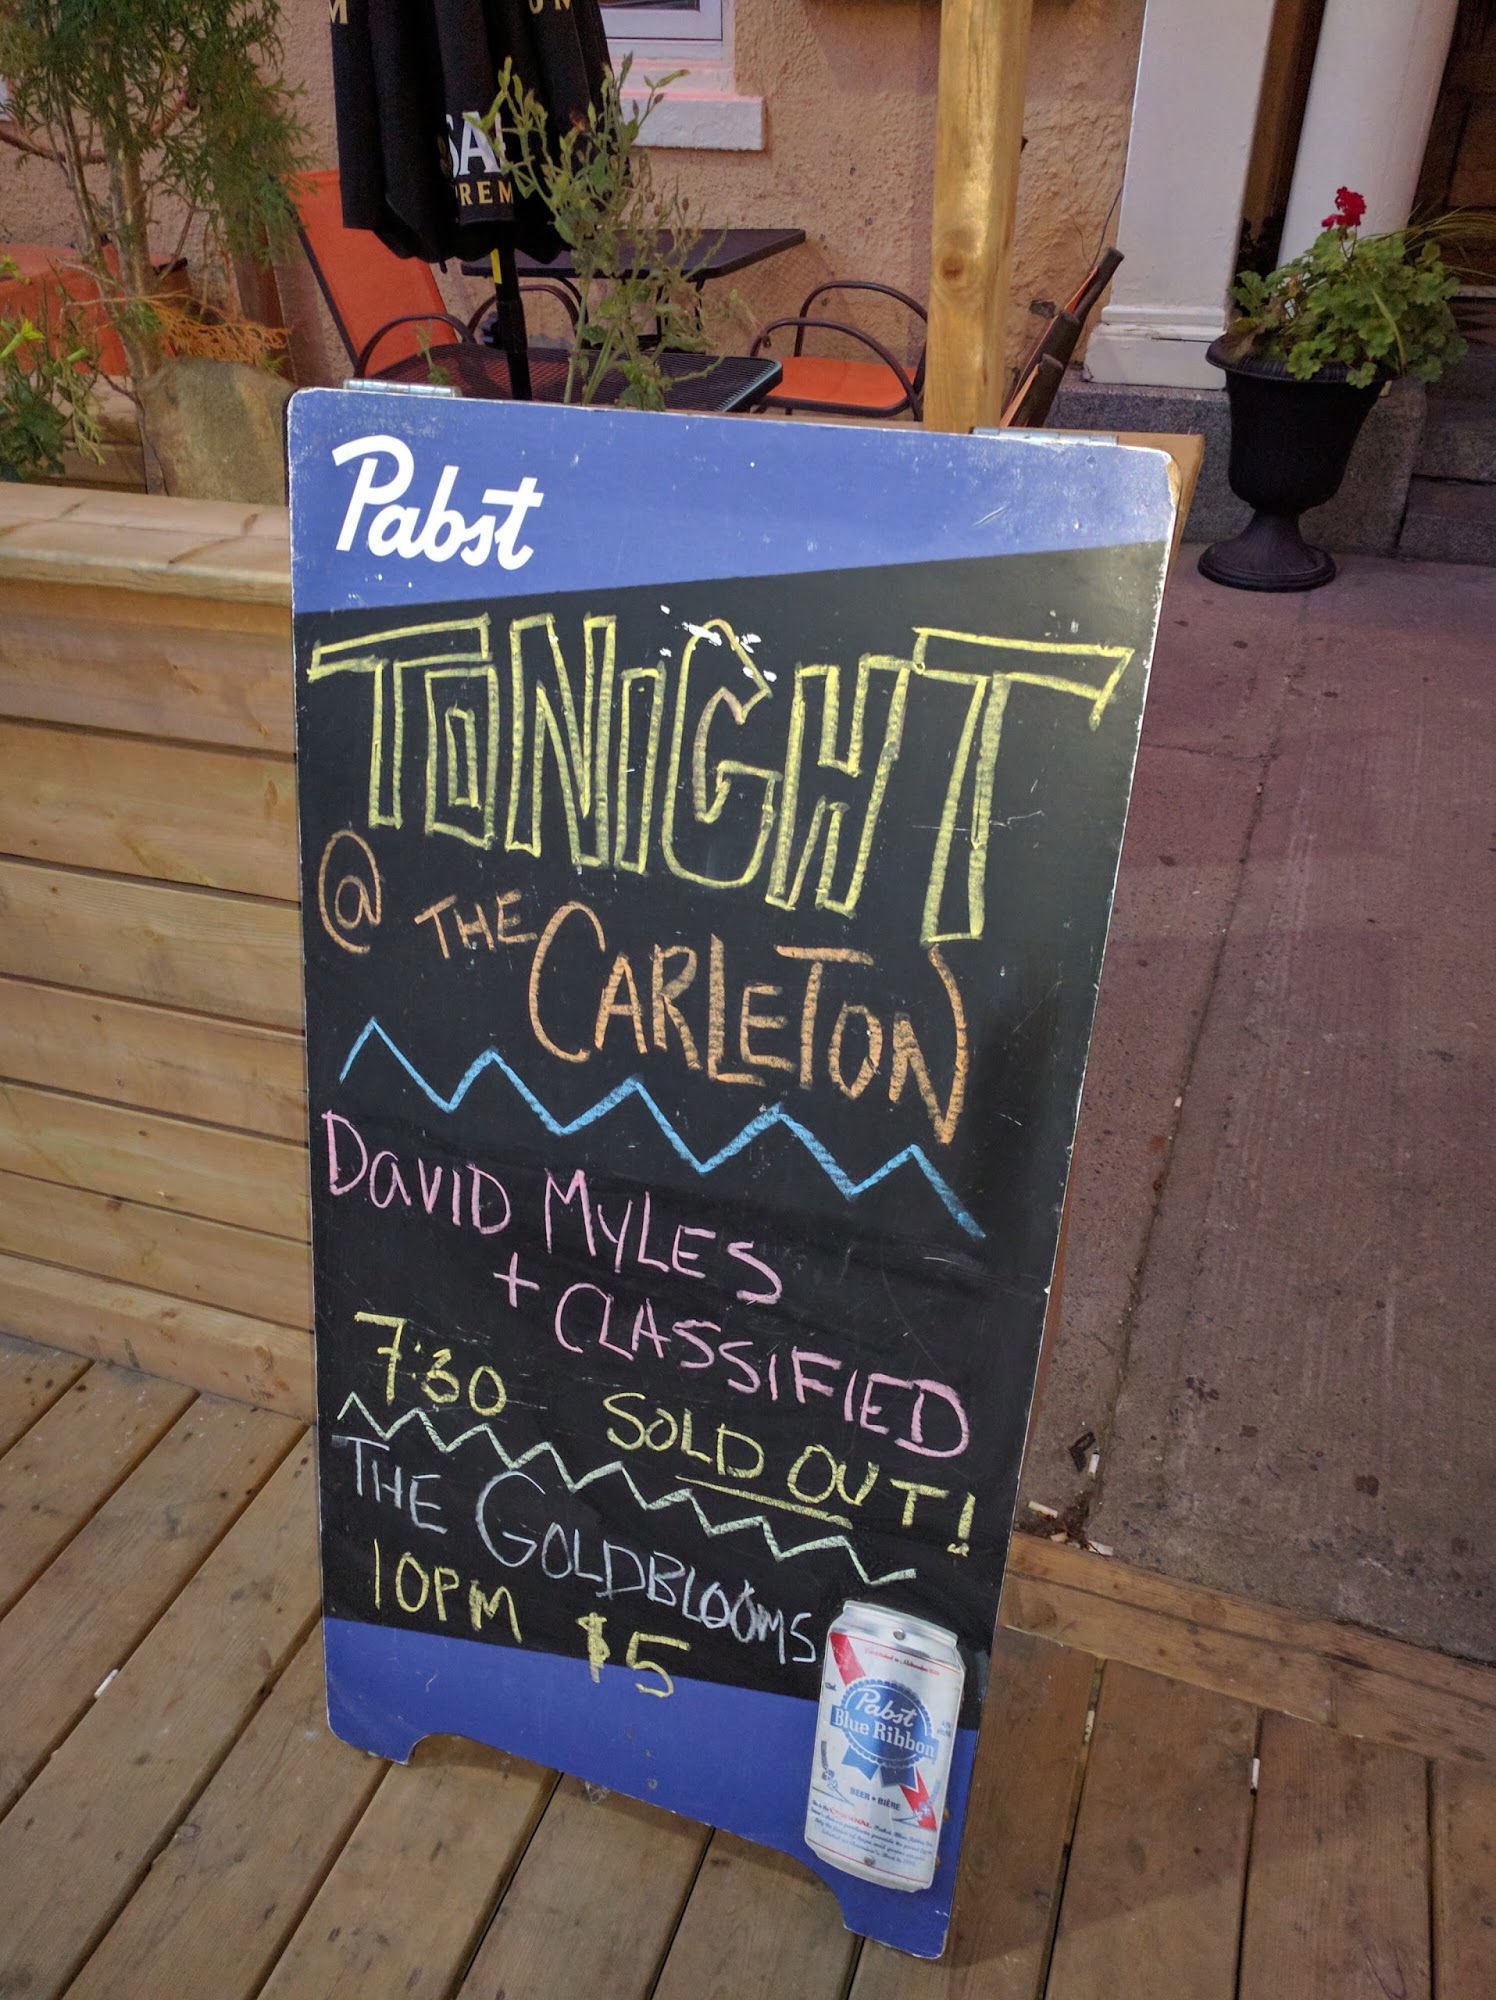 SA
REM
Pabst
TONIGHT
@ THE CARLETON
DAVID MYLES
+ CLASSIFIED
7:30 SOLD OUT!
THE GOLDBLOOMS
10PM $5
Pabst
Blue Ribbon
BEER • BIÈRE